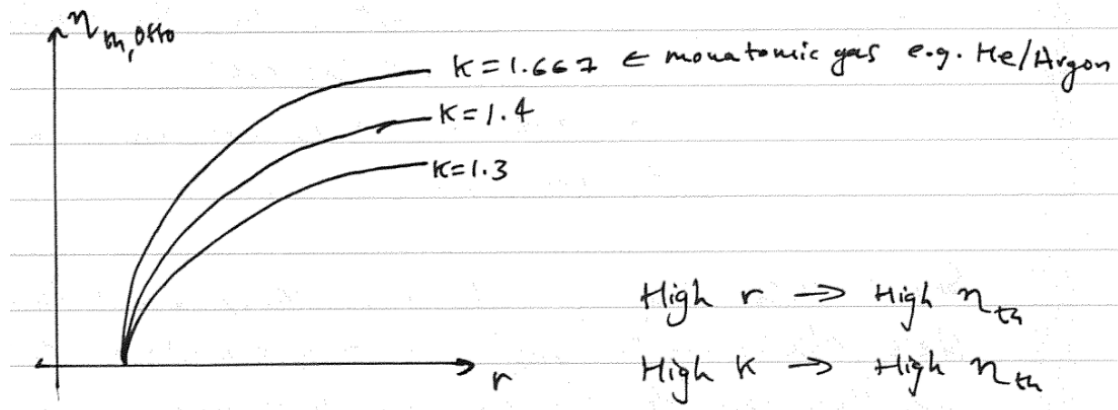 η th, Otto
K=1.667 ← monatomic gas e.g. He/Argon
K=1.4
K=1.3
r
High r → High η th
High K → High η th